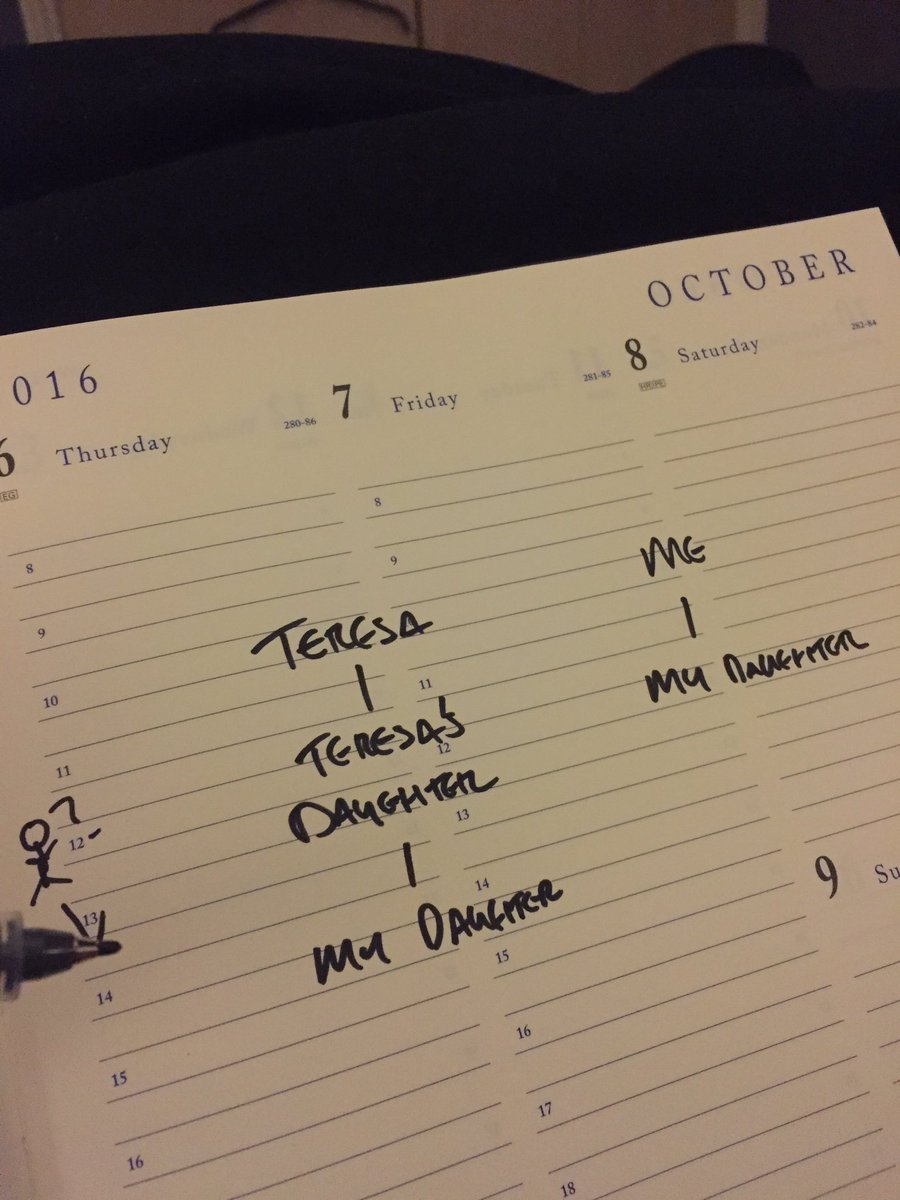 OCTOBER
016
6 Thursday 280-86
7 Friday 281-85
8 Saturday 282-84
8
9
10
11
12
13
14
15
16
8
9
11
12
13
14
15
16
17
18
TERESA
TERESA'S
DAUGHTER
MY DAUGHTER
ME
MY DAUGHTER
9 Su